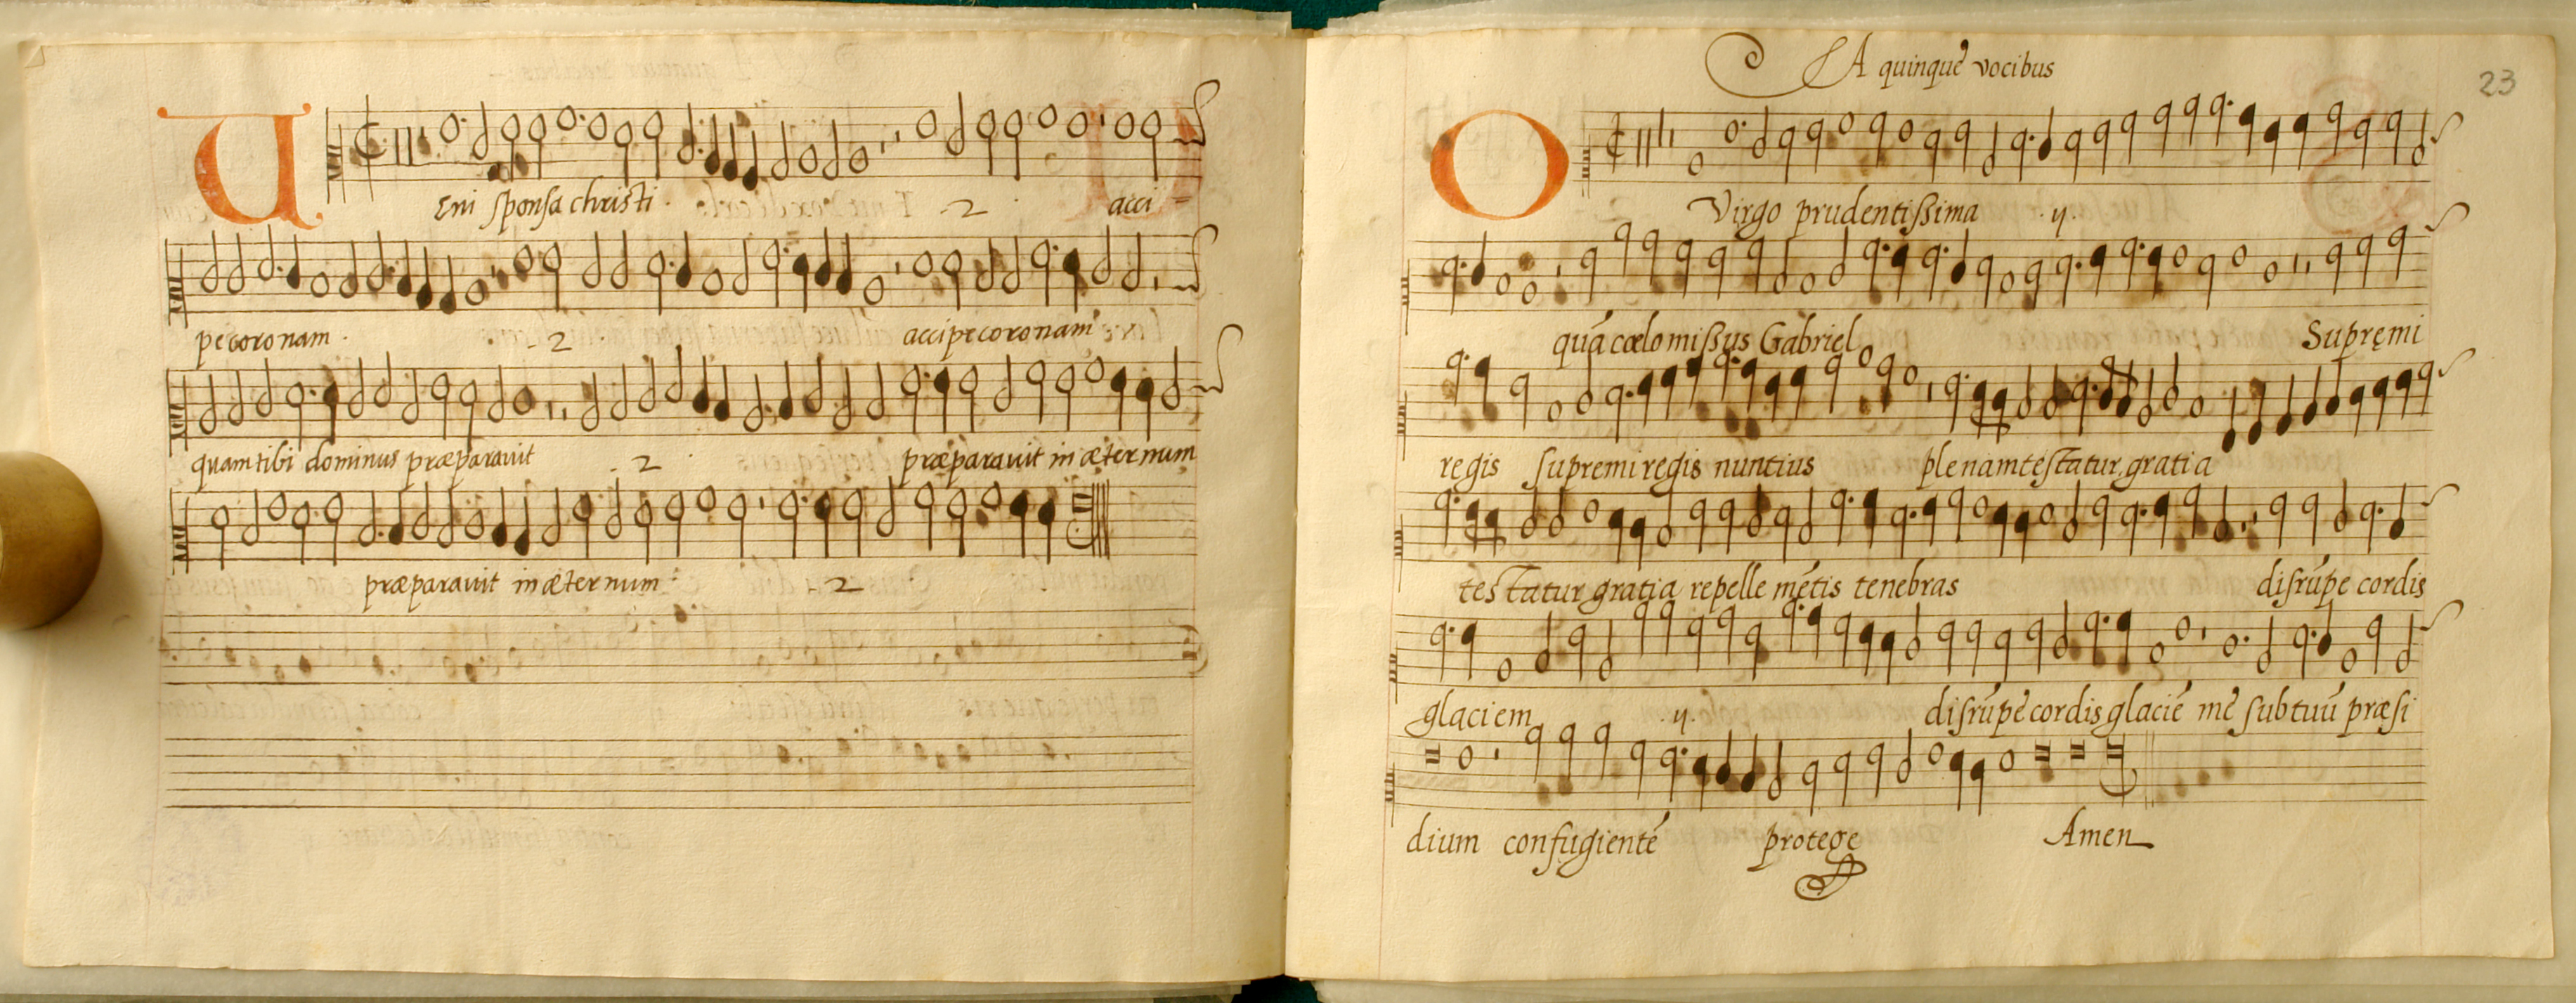 U
Eni sponsa christi . . 2 . acci =
pe coronam . . 2 accipe coronam
quam tibi dominus præparavit . 2 . præparavit in æternum
præparavit in æternum : . 2 .
A quinque vocibus
23
O
Virgo prudentissima . ij .
quá cœlo missus Gabriel Supremi
regis supremi regis nuntius plenam testatur gratia
testatur gratia repelle métis tenebras disrúpe cordis
glaciem . ij . disrúpe cordis glacié me sub tuú præsi
dium confugienté protege Amen